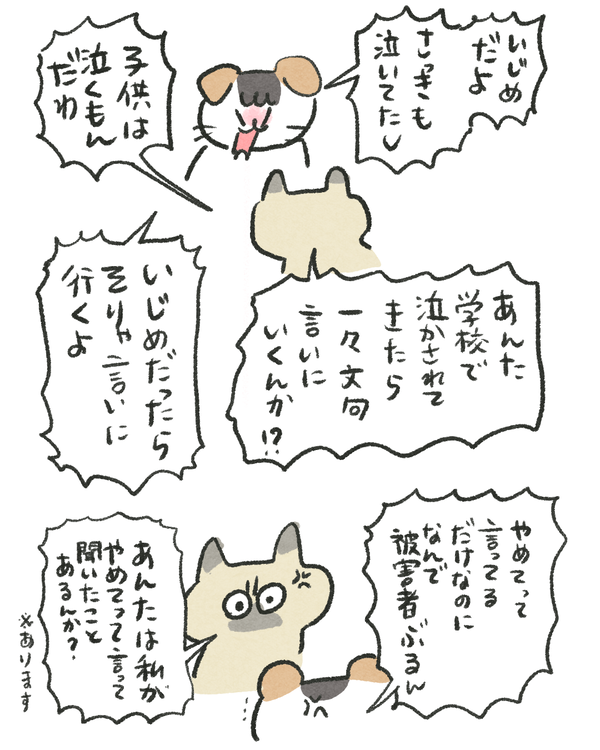 いじめ
だよ
さっきも
泣いてたし
子供は
泣くもん
だわ
あんた
学校で
泣かされて
きたら
一々文句
言いに
いくんか!?
いじめだったら
そりゃ言いに
行くよ
やめてって
言ってる
だけなのに
なんで
被害者ぶるん
あんたは私が
やめてって言って
聞いたこと
あるんか?
※あります